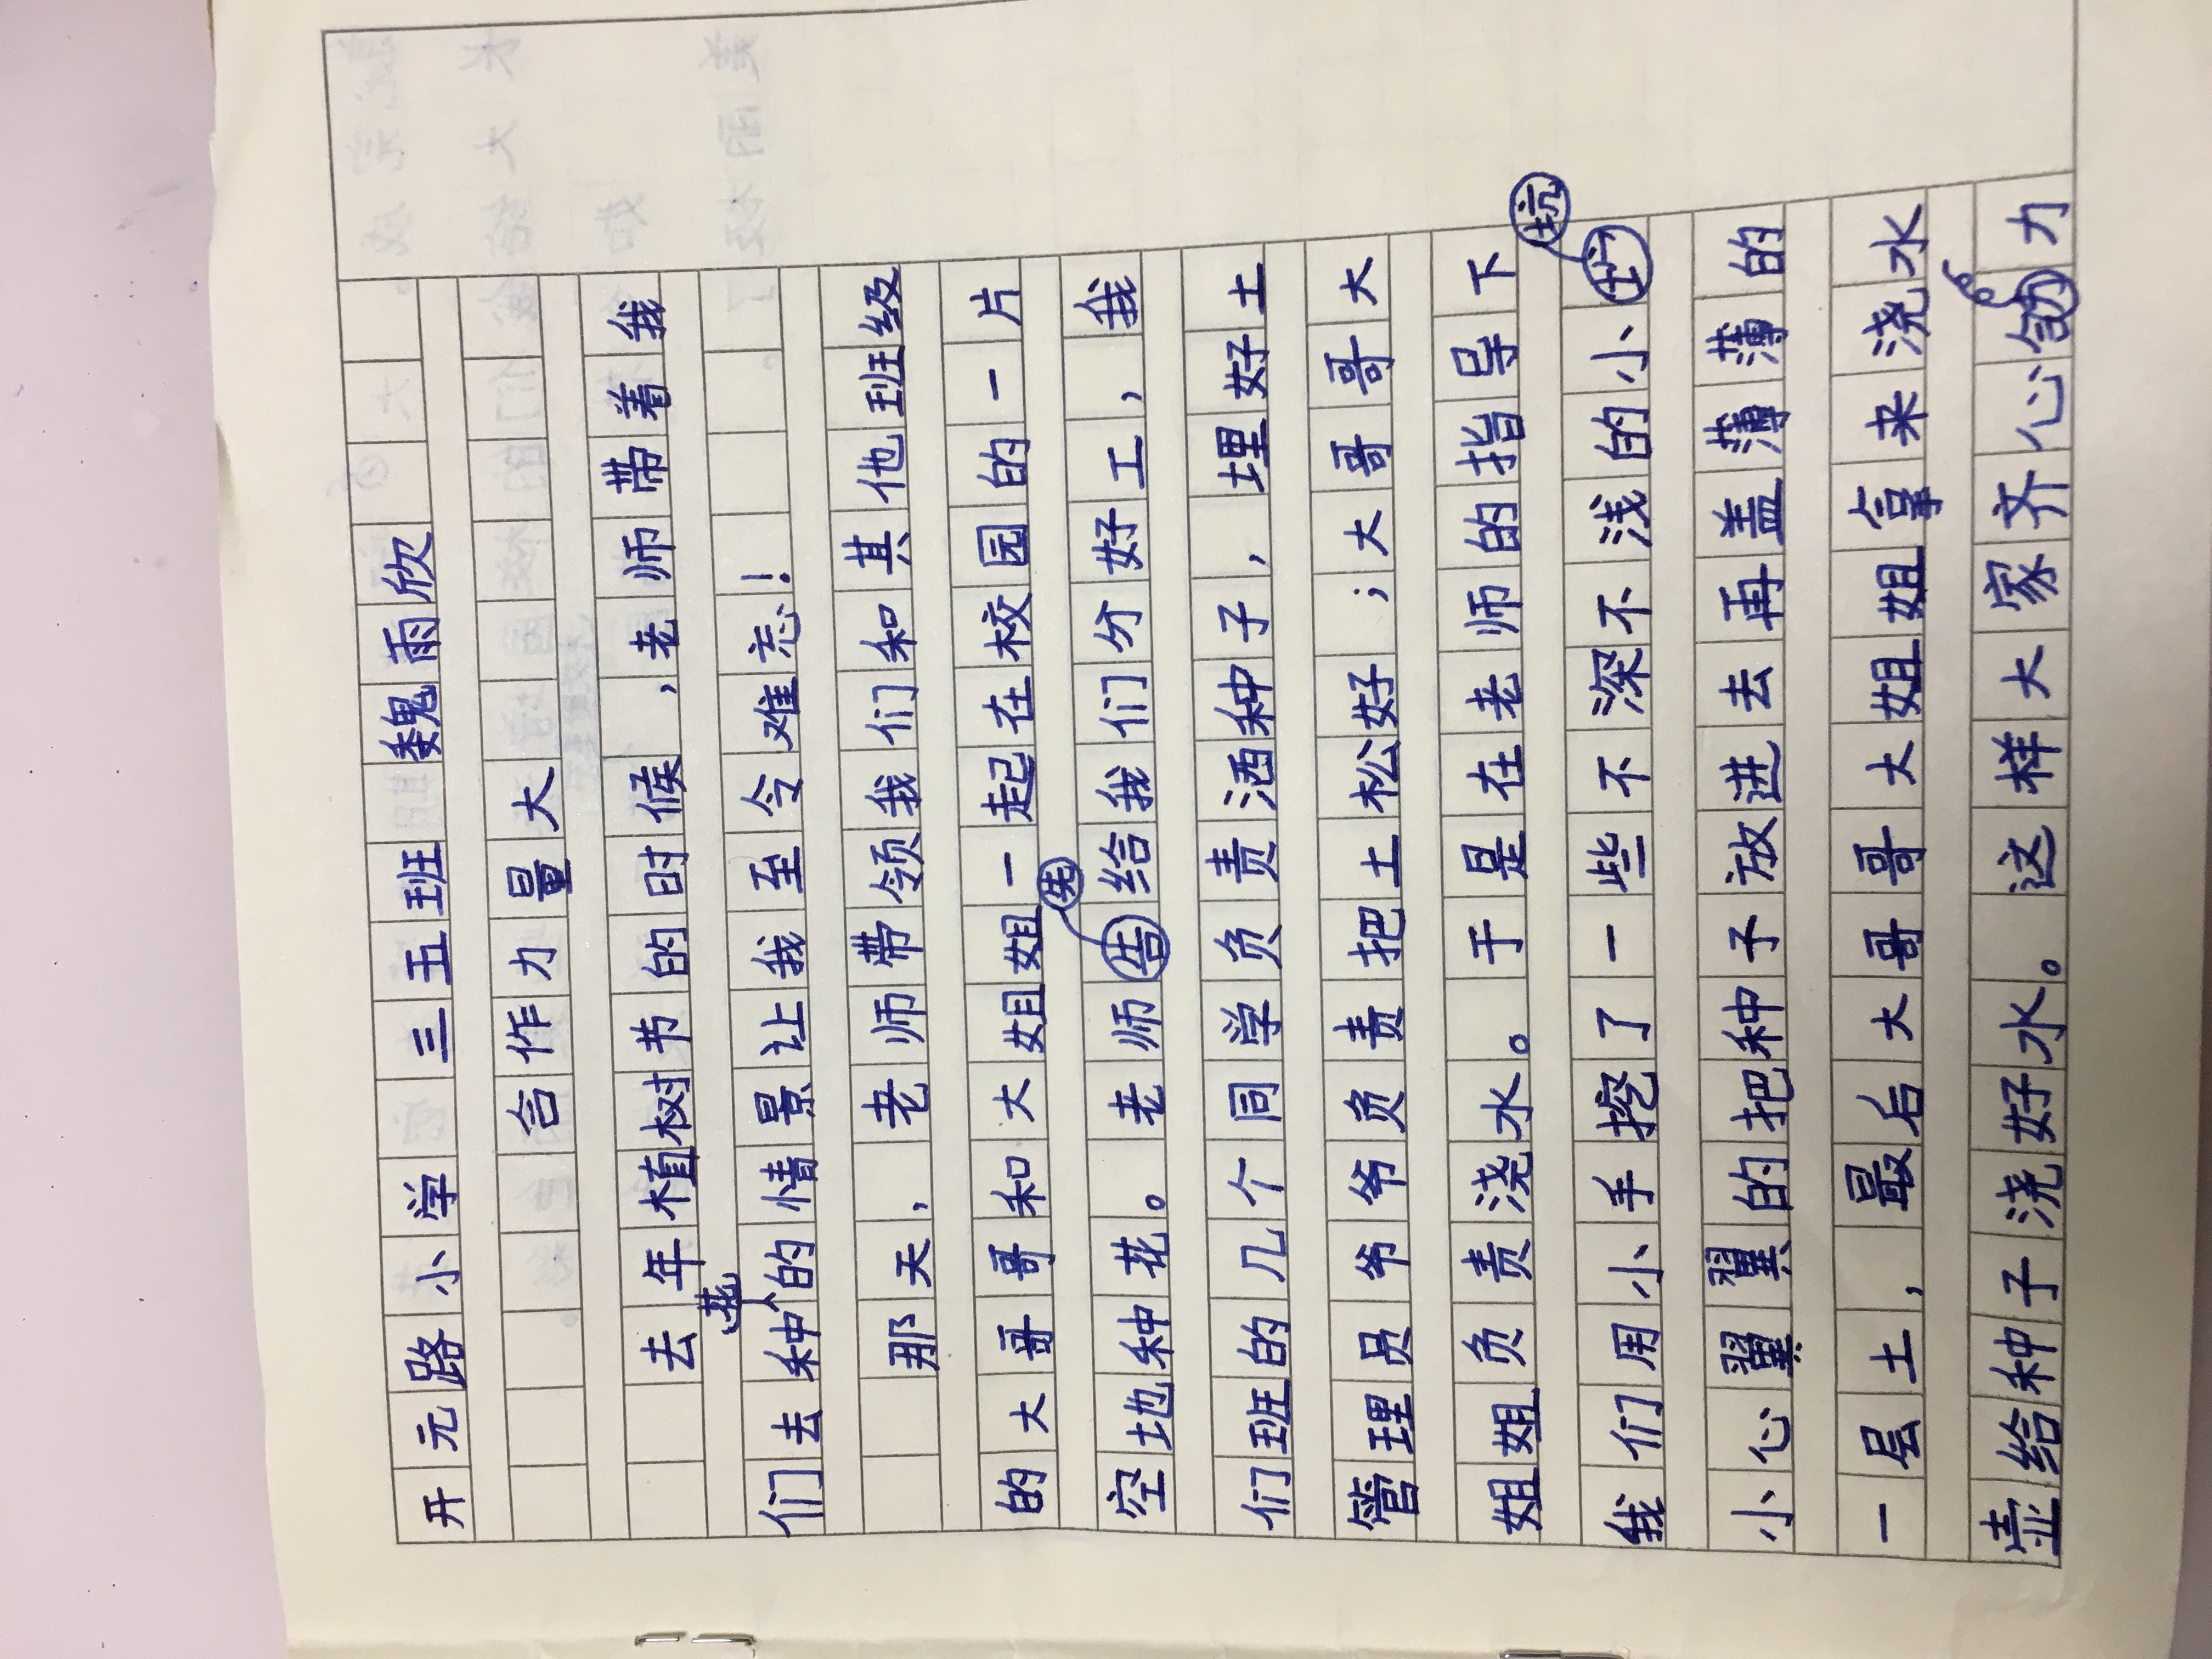 开元路小学 三五班 魏雨欣
合作力量大
去年植树节的时候，老师带着我
们去种花的情景让我至今难忘！
那天，老师带领我们和其他班级
的大哥哥和大姐姐一起在校园的一片
空地种花。老师先给我们分好工，我
们班的几个同学负责洒种子，埋好土
管理员爷爷负责把土松好；大哥哥大
姐姐负责浇水。于是在老师的指导下
我们用小手挖了一些不深不浅的小坑
小心翼翼的把种子放进去再盖薄薄的
一层土，最后大哥哥大姐姐拿来浇水
壶给种子浇好水。这样大家齐心力